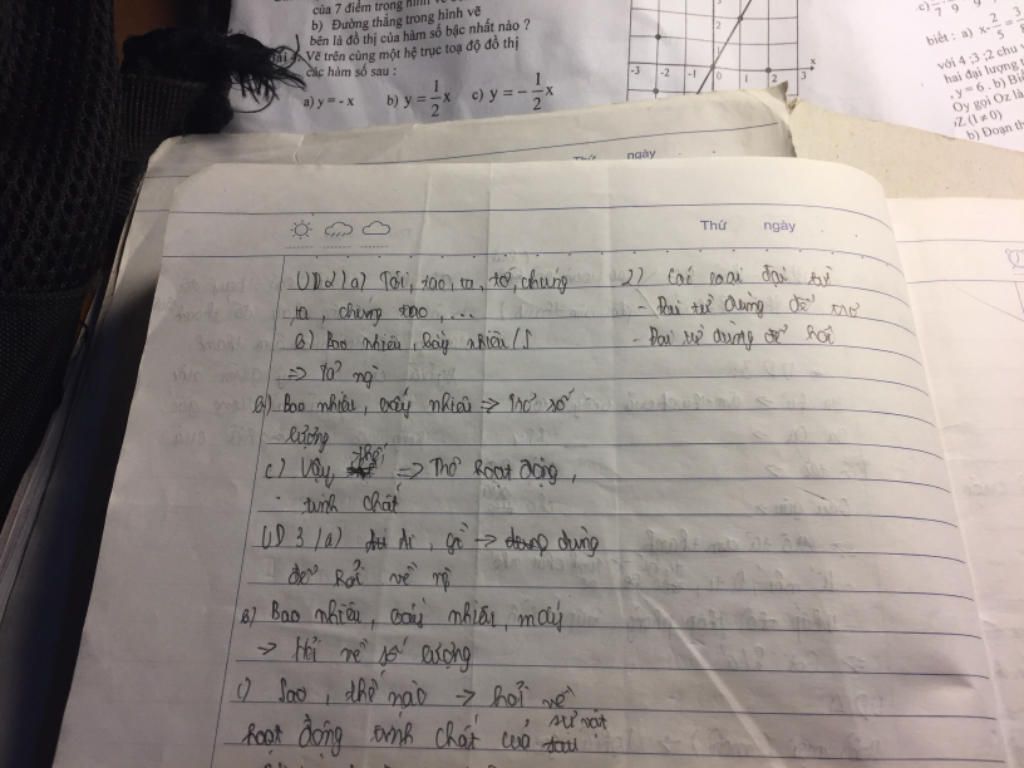 của 7 điểm trong hình vẽ
b) Đường thẳng trong hình vẽ
bên là đồ thị của hàm số bậc nhất nào ?
Vẽ trên cùng một hệ trục toạ độ đồ thị
các hàm số sau :
a) y = - x b) y = 1/2 x c) y = - 1/2 x
-3 -2 -1 0 1 2 3 x
2
biết : a) x- 2/5 =
với 4 ;3 ;2 chu
hai đại lượng
, y = 6 . b)
Oy gọi Oz là
(1 ≠ 0)
b) Đoạn
ngày
Thứ ngày
VD2/a) Tôi, tao, ta, tớ, chúng
ta, chúng tao, ...
b) Bao nhiêu, bấy nhiêu
=>
b) Bao nhiêu, bấy nhiêu => Trỏ số
lượng
c) Vậy, thế => Trỏ hoạt động,
tính chất
VD 3/a) Ai, gì -> dùng
để hỏi về
b) Bao nhiêu, bấy nhiêu, mấy
-> Hỏi về số lượng
c) Sao, thế nào -> hỏi về
hoạt động tính chất của sự vật
2) Các loại đại từ
- Đại từ dùng để trỏ
- Đại từ dùng để hỏi